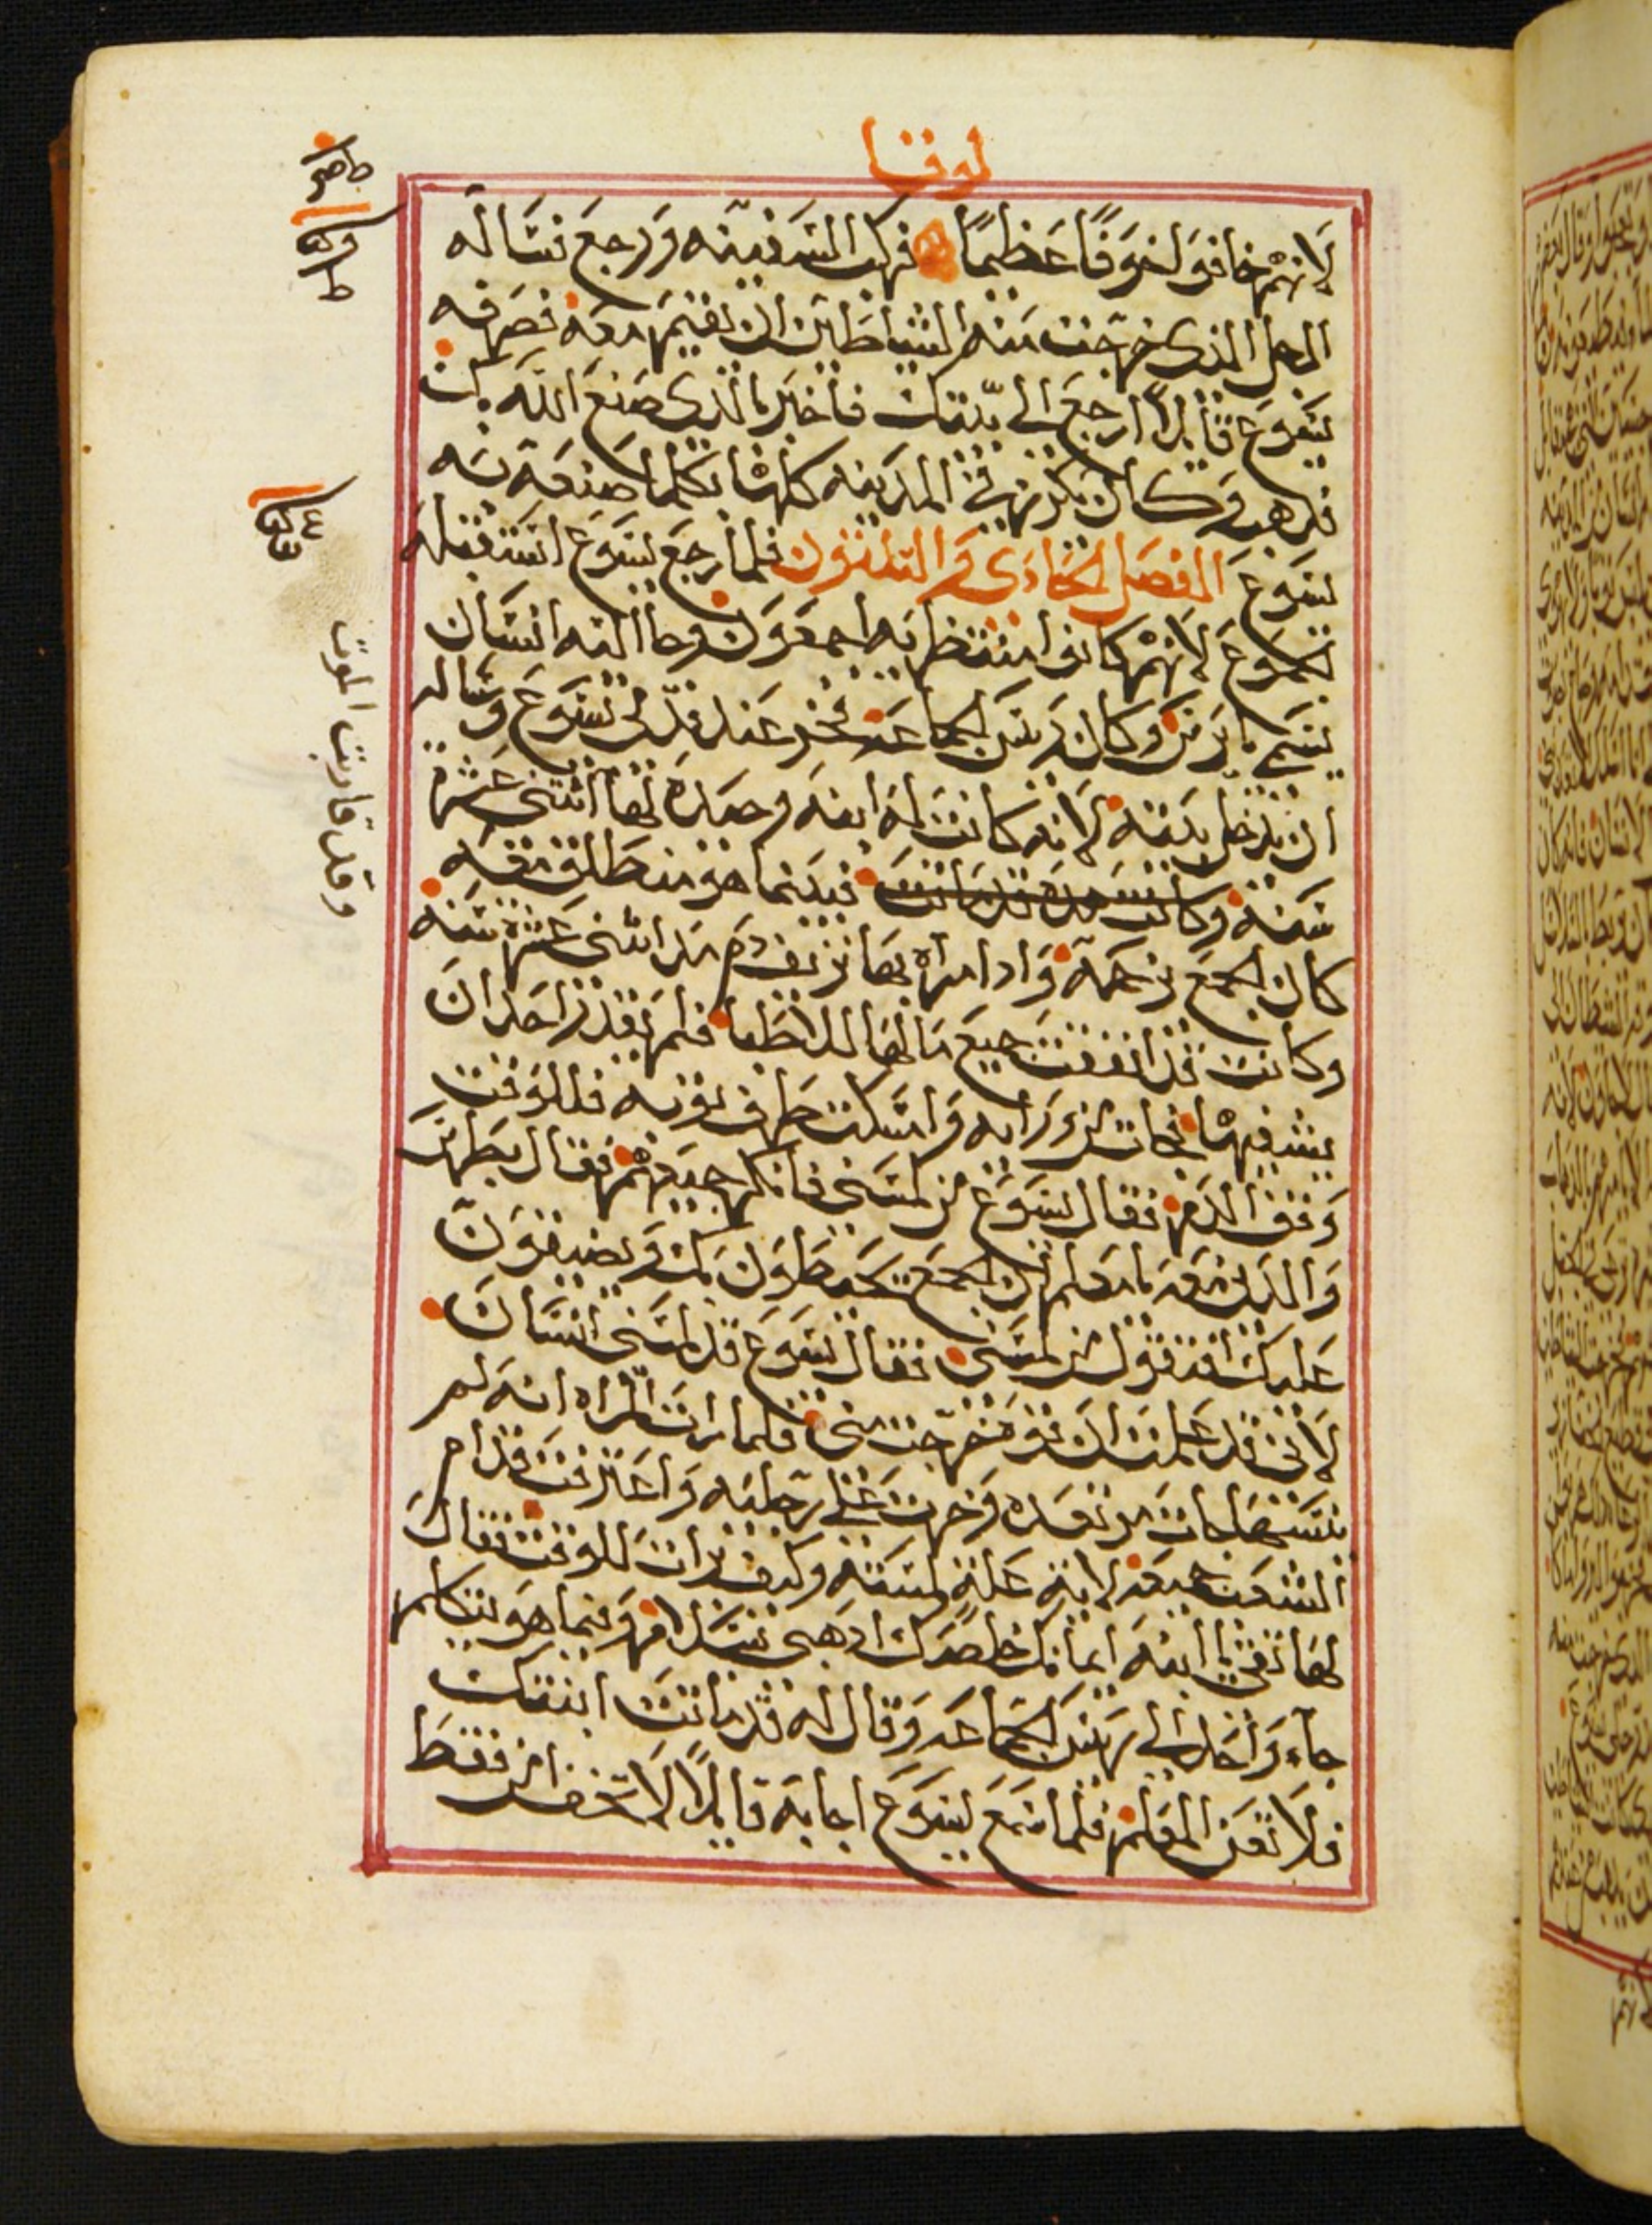 لوقا
لانهم خافوا خوفًا عظيمًا فركب السفينه ورجع فساله
الرجل الذى خرجت منه الشياطين ان يقيم معه فصرفه
يسوع قايلًا ارجع الى بيتك فاخبر بالذى صنع الله بك
فذهب وكان يكرز في المدينه كلها بكلما صنعه به
يسوع الفصل الحادى والثلثون فلما رجع يسوع استقبله
لانهم كانوا منتظرينه اجمعون وجا اليه انسان
يسمى يايرس وكان ريس الجماعه فخر عند قدمى يسوع وساله
ان يدخل بيته لانه كانت له ابنه وحيده لها اثنتى عشرة
سنه وكانت هذه قد ماتت فبينما هو منطلق معه
كان الجمع يزحمه واد امراه بها نزيف دم مند اثنى عشرة سنه
وكانت قد انفقت جميع مالها للاطبا فلم يقدر احد ان
يشفيها فجات من ورايه وامسكت طرف ثوبه فللوقت
وقف الدم فقال يسوع من لمسنى فانكر جميعهم فقال بطرس
والدين معه يا معلم ان الجمع يحيطون بك ويضيقون
عليك افتقول من لمسنى فقال يسوع قد لمسنى انسان
لانى قد علمت ان قوه خرجت منى فلما رات المراه انه لم
ينسها جات مرتعده وخرت على رجليه واعترفت قدام
الشعب جميعه لاية علة لمسته وكيف برات للوقت فقال
لها ثقى يا ابنه ايمانك خلصك ادهبى بسلام وفيما هو يتكلم
جاء واحد الى ريس الجماعه وقال له قد ماتت ابنتك
فلا تعن المعلم فلما سمع يسوع اجابه قايلًا لا تخف امن فقط
وقد قاربت الموت